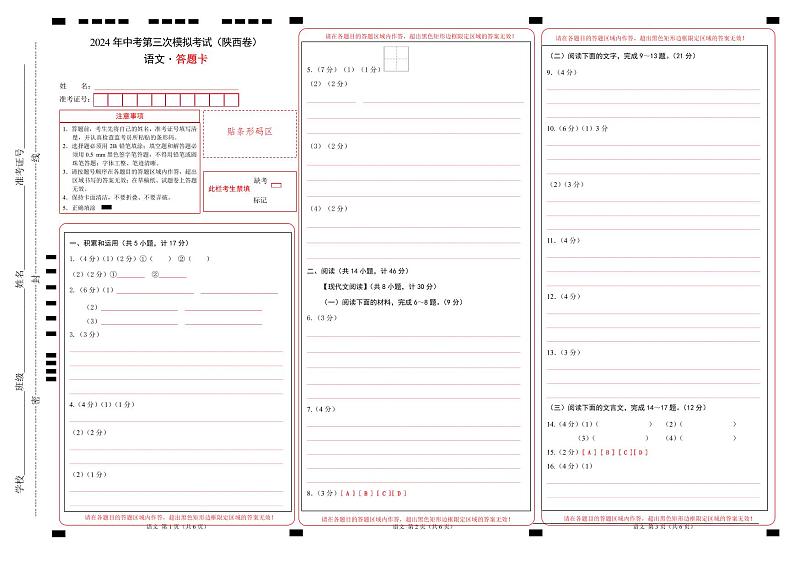 2024 年中考第三次模拟考试（陕西卷）
语文·答题卡
姓 名：
准考证号：
注意事项
1．答题前，考生先将自己的姓名，准考证号填写清
楚，并认真检查监考员所粘贴的条形码。
2．选择题必须用 2B 铅笔填涂；填空题和解答题必
须用 0.5 mm 黑色签字笔答题，不得用铅笔或圆
珠笔答题；字体工整、笔迹清晰。
3．请按题号顺序在各题目的答题区域内作答，超出
区域书写的答案无效；在草稿纸、试题卷上答题
无效。
4．保持卡面清洁，不要折叠、不要弄破。
5．正确填涂
贴条形码区
此栏考生禁填
缺考
标记
学校
班级
姓名
准考证号
密
封
线
一、积累和运用（共 5 小题，计 17 分）
1.（4 分）(1)（2 分）①（ ） ②（ ）
(2)（2 分）① ②
2.（6 分）(1)
（2）
（3）
3.（3 分）
4.（4 分）(1)（1 分）
(2)（2 分）
(2)（1 分）
请在各题目的答题区域内作答，超出黑色矩形边框限定区域的答案无效！
语文 第 1 页（共 6 页）
请在各题目的答题区域内作答，超出黑色矩形边框限定区域的答案无效！
5.（7 分）（1）（1 分）
（2）（2 分）
（3）（2 分）
（4）（2 分）
二、阅读（共 14 小题，计 46 分）
【现代文阅读】（共 8 小题，计 30 分）
（一）阅读下面的材料，完成 6～8 题。（9 分）
6.（3 分）
7.（4 分）
8.（3 分）[ A ] [ B ] [ C ] [ D ]
请在各题目的答题区域内作答，超出黑色矩形边框限定区域的答案无效！
语文 第 2 页（共 6 页）
请在各题目的答题区域内作答，超出黑色矩形边框限定区域的答案无效！
（二）阅读下面的文字，完成 9～13 题。（21 分）
9.（4 分）
10.（6 分）(1) 3 分
(2)（3 分）
11.（4 分）
12.（4 分）
13.（3 分）
（三）阅读下面的文言文，完成 14～17 题。（12 分）
14.（4 分）(1)（ ） (2)（ ）
(3)（ ） (4)（ ）
15.（2 分）[ A ] [ B ] [ C ] [ D ]
16.（4 分）(1)
请在各题目的答题区域内作答，超出黑色矩形边框限定区域的答案无效！
语文 第 3 页（共 6 页）